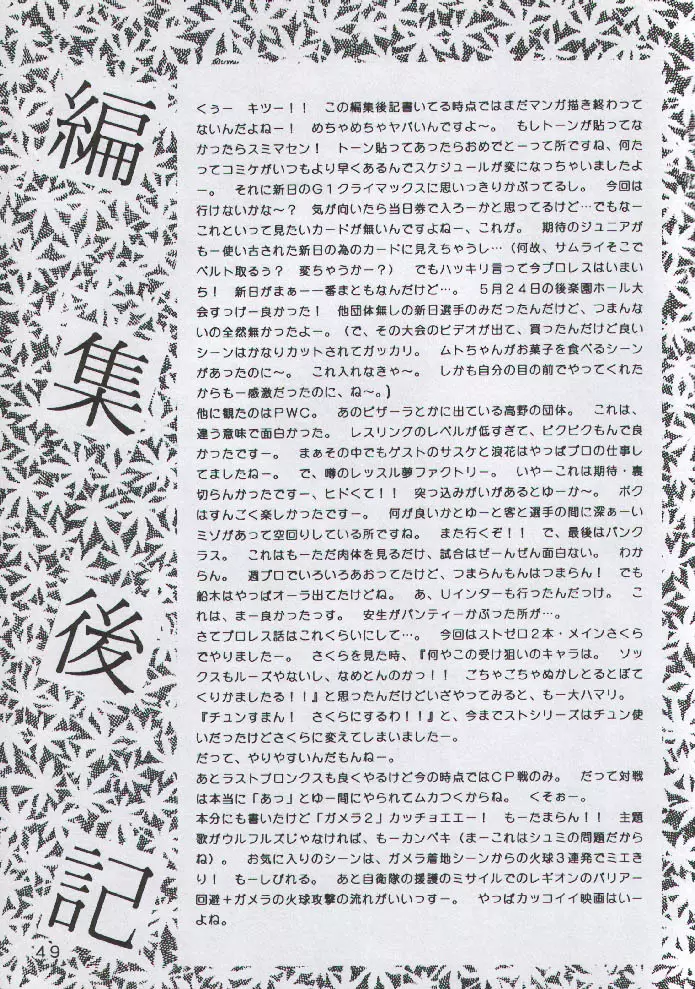 編集後記
くぅー　キツー！！　この編集後記書いてる時点ではまだマンガ描き終わって
ないんだよねー！　めちゃめちゃヤバいんですよ〜。　もしトーンが貼ってな
かったらスミマセン！　トーン貼ってあったらおめでとーって所ですね、何た
ってコミケがいつもより早くあるんでスケジュールが変になっちゃいましたよ
ー。　それに新日のG１クライマックスに思いっきりかぶってるし。　今回は
行けないかな〜？　気が向いたら当日券で入ろーかと思ってるけど…でもなー
これといって見たいカードが無いんですよねー、これが。　期待のジュニアが
もー使い古された新日の為のカードに見えちゃうし…（何故、サムライそこで
ベルト取るぅ？　変ちゃうかー？）　でもハッキリ言って今プロレスはいまい
ち！　新日がまぁーー番まともなんだけど…。　５月２４日の後楽園ホール大
会すっげー良かった！　他団体無しの新日選手のみだったんだけど、つまんな
いの全然無かったよー。（で、その大会のビデオが出て、買ったんだけど良い
シーンはかなりカットされてガッカリ。　ムトちゃんがお菓子を食べるシーン
があったのに〜。　これ入れなきゃ〜。　しかも自分の目の前でやってくれた
からもー感激だったのに、ね〜。）
他に観たのはPWC。　あのピザーラとかに出ている高野の団体。　これは、
違う意味で面白かった。　レスリングのレベルが低すぎて、ピクピクもんで良
かったですー。　まぁその中でもゲストのサスケと浪花はやっぱプロの仕事し
てましたねー。　で、噂のレッスル夢ファクトリー。　いやーこれは期待・裏
切らんかったですー、ヒドくて！！　突っ込みがいがあるとゆーか〜。　ボク
はすんごく楽しかったですー。　何が良いかとゆーと客と選手の間に深ぁーい
ミゾがあって空回りしている所ですね。　また行くぞ！！　で、最後はパンク
ラス。　これはもーただ肉体を見るだけ、試合はぜーんぜん面白ない。　わか
らん。　週プロでいろいろあおってたけど、つまらんもんはつまらん！　でも
船木はやっぱオーラ出てたけどね。　あ、Uインターも行ったんだっけ。　こ
れは、まー良かったっす。　安生がパンティーかぶった所が…。
さてプロレス話はこれくらいにして…。　今回はストゼロ２本・メインさくら
でやりましたー。　さくらを見た時、『何やこの受け狙いのキャラは。　ソッ
クスもルーズやないし、なめとんのかっ！！　ごちゃごちゃぬかしとるとぼて
くりかましたる！！』と思ったんだけどいざやってみると、もー大ハマリ。
『チュンすまん！　さくらにするわ！！』と、今までストシリーズはチュン使
いだったけどさくらに変えてしまいましたー。
だって、やりやすいんだもんねー。
あとラストブロンクスも良くやるけど今の時点ではCP戦のみ。　だって対戦
は本当に「あっ」とゆー間にやられてムカつくからね。　くそぉー。
本分にも書いたけど「ガメラ２」カッチョエエー！　もーたまらん！！　主題
歌がウルフルズじゃなければ、もーカンペキ（まーこれはシュミの問題だから
ね）。　お気に入りのシーンは、ガメラ着地シーンからの火球３連発でミエき
り！　もーしびれる。　あと自衛隊の援護のミサイルでのレギオンのバリアー
回避＋ガメラの火球攻撃の流れがいいっすー。　やっぱカッコイイ映画はいー
よね。
49